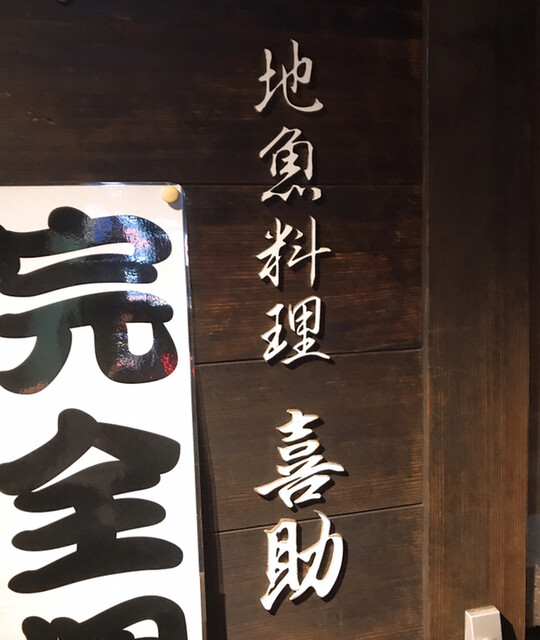 地魚料理 喜助
完全